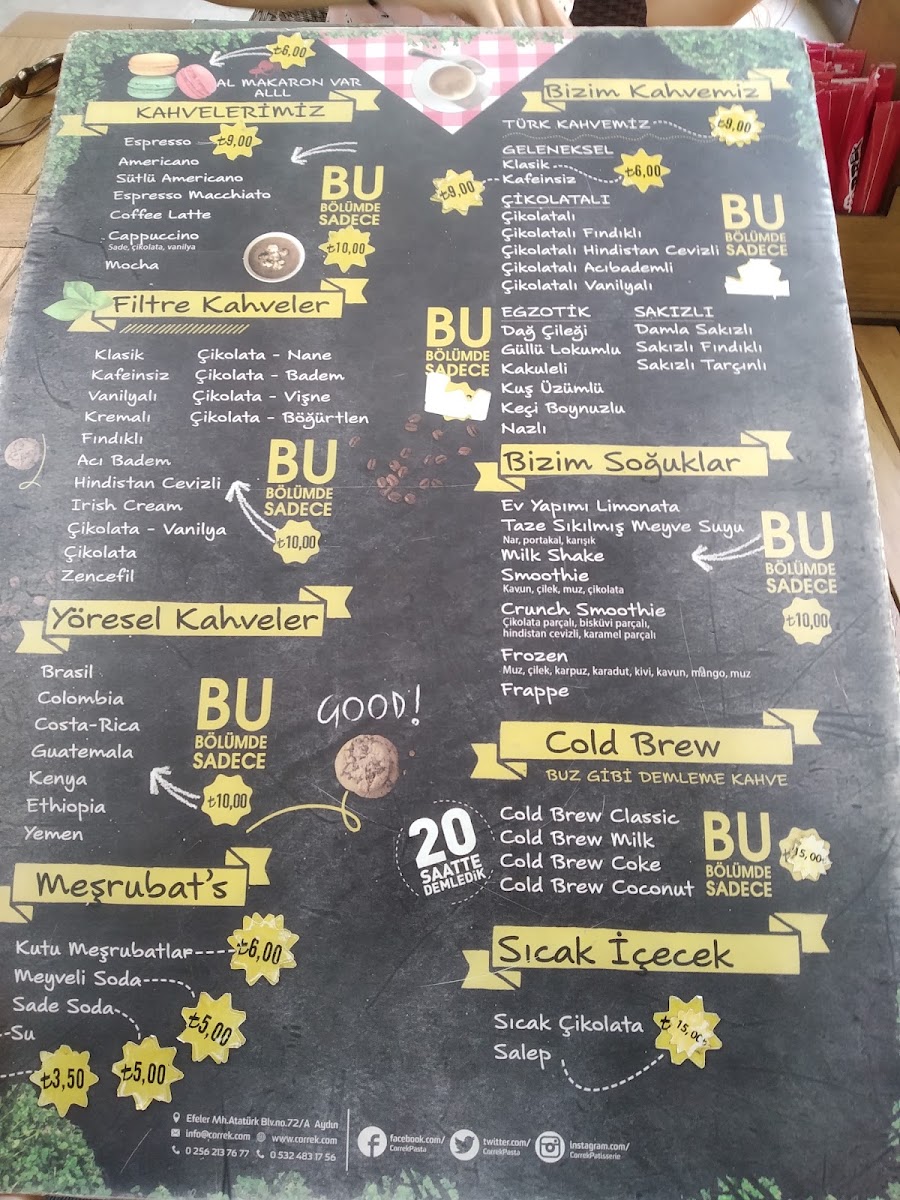 ₺6,00
AL MAKARON VAR
ALLL
KAHVELERİMİZ
Espresso ₺9,00
Americano
Sütlü Americano
Espresso Macchiato
Coffee Latte
Cappuccino
Sade, çikolata, vanilya
Mocha
BU
BÖLÜMDE
SADECE
₺10,00
Filtre Kahveler
Klasik
Kafeinsiz
Vanilyalı
Kremalı
Fındıklı
Acı Badem
Hindistan Cevizli
Irish Cream
Çikolata - Vanilya
Çikolata
Zencefil
Çikolata - Nane
Çikolata - Badem
Çikolata - Vişne
Çikolata - Böğürtlen
BU
BÖLÜMDE
SADECE
₺10,00
Yöresel Kahveler
Brasil
Colombia
Costa-Rica
Guatemala
Kenya
Ethiopia
Yemen
BU
BÖLÜMDE
SADECE
₺10,00
GOOD!
Meşrubat's
Kutu Meşrubatlar ₺6,00
Meyveli Soda ₺5,00
Sade Soda ₺5,00
Su ₺3,50
Bizim Kahvemiz
TÜRK KAHVEMİZ ₺9,00
GELENEKSEL
Klasik ₺6,00
₺9,00 Kafeinsiz
ÇİKOLATALI
Çikolatalı
Çikolatalı Fındıklı
Çikolatalı Hindistan Cevizli
Çikolatalı Acıbademli
Çikolatalı Vanilyalı
BU
BÖLÜMDE
SADECE
EGZOTİK
Dağ Çileği
Güllü Lokumlu
Kakuleli
Kuş Üzümlü
Keçi Boynuzlu
Nazlı
SAKIZLI
Damla Sakızlı
Sakızlı Fındıklı
Sakızlı Tarçınlı
BU
BÖLÜMDE
SADECE
Bizim Soğuklar
Ev Yapımı Limonata
Taze Sıkılmış Meyve Suyu
Nar, portakal, karışık
Milk Shake
Smoothie
Kavun, çilek, muz, çikolata
Crunch Smoothie
Çikolata parçalı, bisküvi parçalı,
hindistan cevizli, karamel parçalı
Frozen
Muz, çilek, karpuz, karadut, kivi, kavun, mango, muz
Frappe
BU
BÖLÜMDE
SADECE
₺10,00
Cold Brew
BUZ GİBİ DEMLEME KAHVE
20
SAATTE
DEMLEDİK
Cold Brew Classic
Cold Brew Milk
Cold Brew Coke
Cold Brew Coconut
BU
BÖLÜMDE
SADECE
₺15,00
Sıcak İçecek
Sıcak Çikolata ₺15,00
Salep
Efeler Mh.Atatürk Blv.no.72/A Aydın
info@correk.com www.correk.com
0 256 213 76 77 0 532 483 17 56
facebook.com/
CorrekPasta
twitter.com/
CorrekPasta
Instagram.com/
CorrekPatisserie